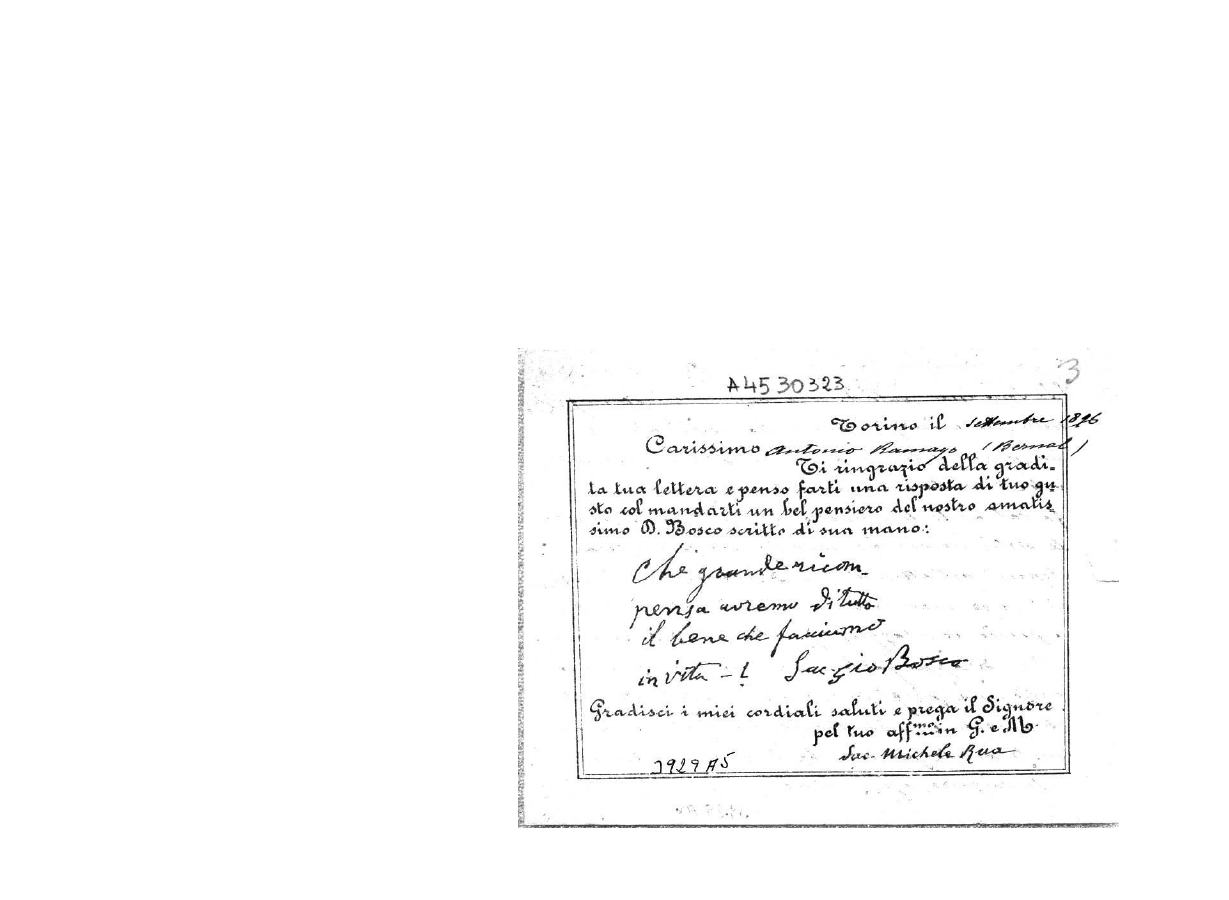 3
A4530323
Torino il settembre 1896
Carissimo Antonio Ramayo (Bernal)
Ti ringrazio della gradi-
ta tua lettera e penso farti una risposta di tuo gu-
sto col mandarti un bel pensiero del nostro amatis-
simo D. Bosco scritto di sua mano:
Che grande ricom-
pensa avremo di tutto
il bene che facciamo
in vita - !   Sac Gio Bosco
Gradisci i miei cordiali saluti e prega il Signore
pel tuo aff.mo in G. e M.
Sac. Michele Rua
3929A5